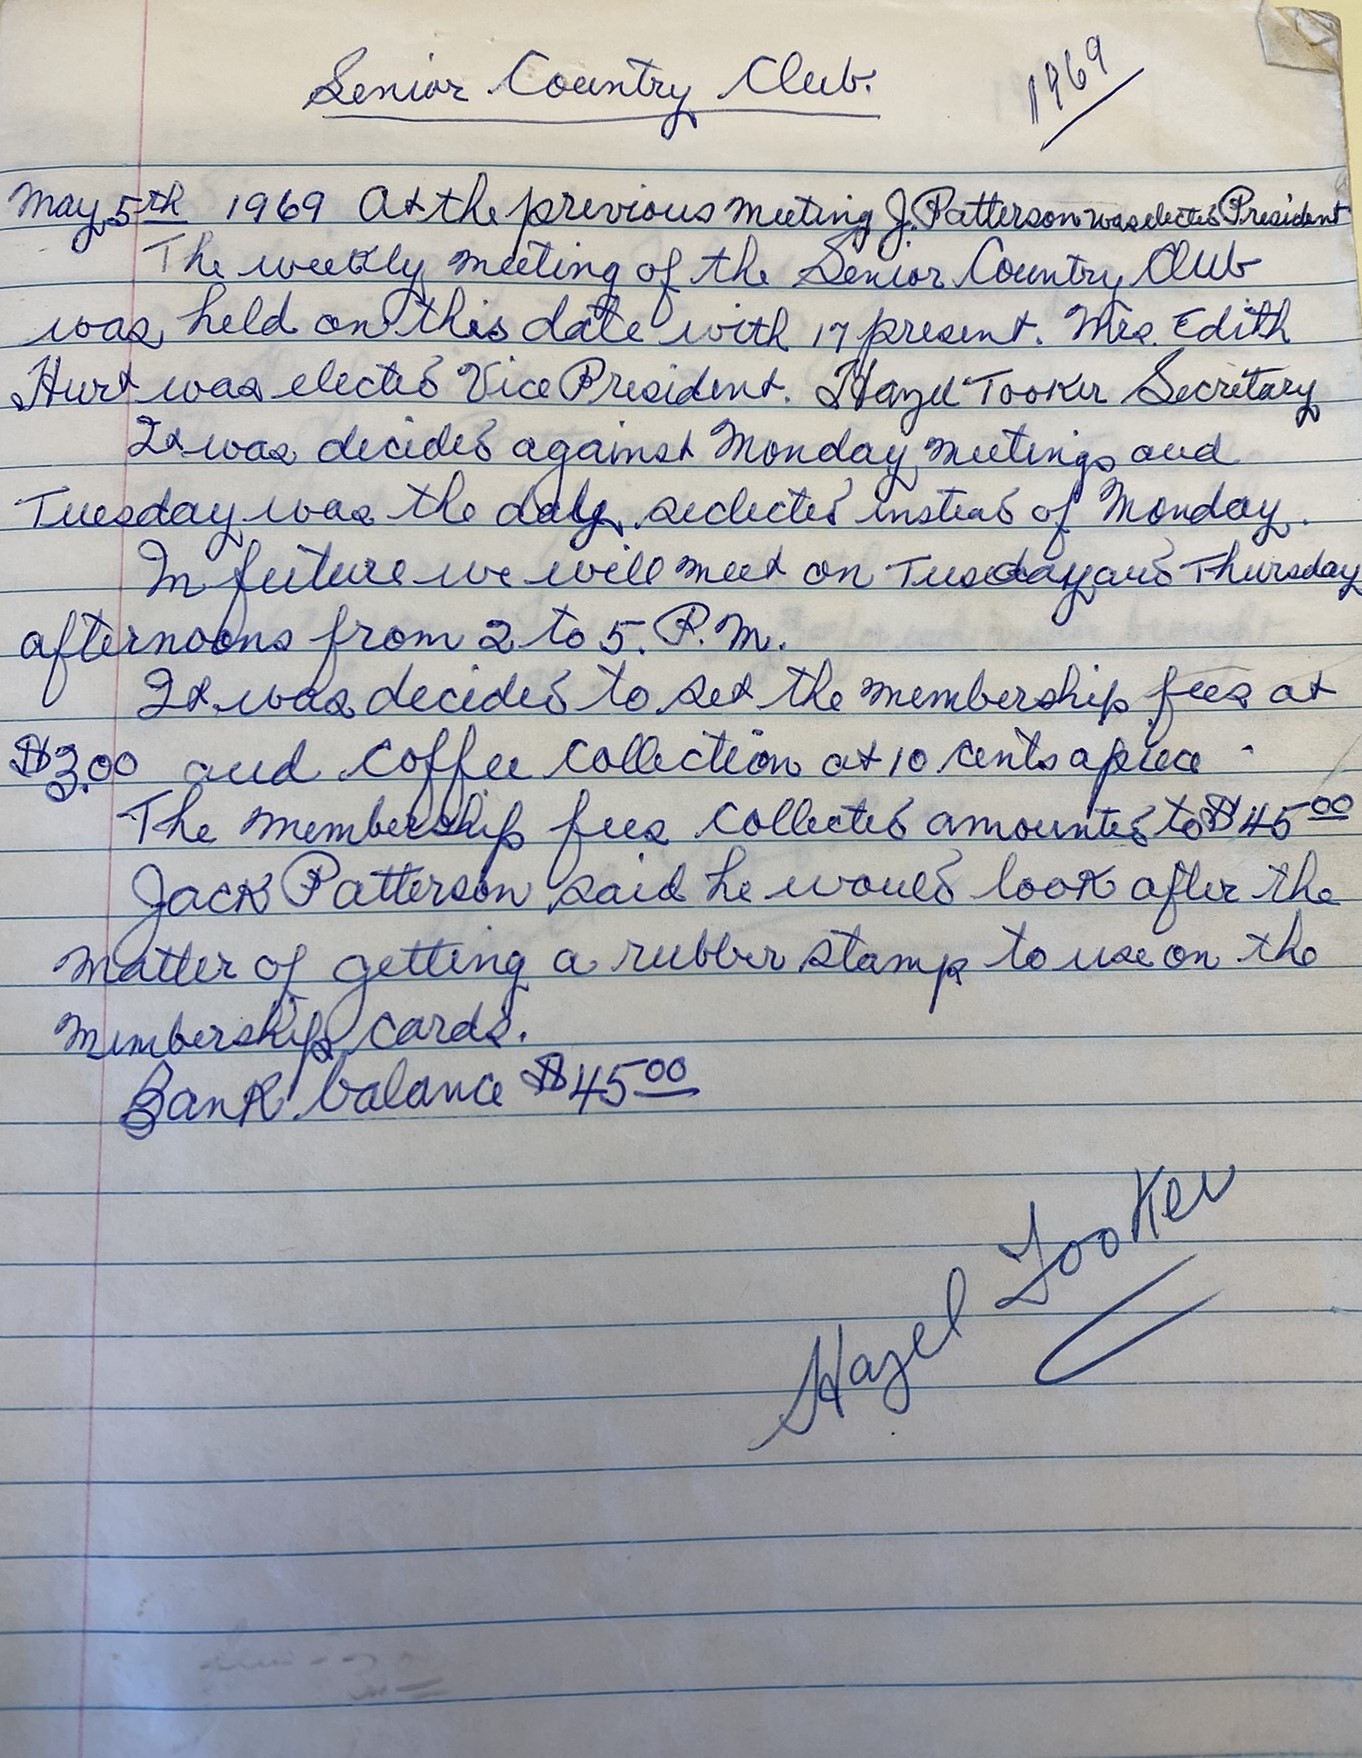 Senior Country Club.
1969
May 5th 1969 At the previous meeting J. Patterson was elected President
The weekly meeting of the Senior Country Club
was held on this date with 17 present. Mrs. Edith
Hurt was elected Vice President. Hazel Tooker Secretary
It was decided against Monday meetings and
Tuesday was the day seclected instead of Monday.
In future we will meet on Tuesday and Thursday
afternoons from 2 to 5. P.M.
It was decided to set the membership fees at
$3.00 and coffee collection at 10 cents apiece
The membership fees collected amounted to $45.00
Jack Patterson said he would look after the
matter of getting a rubber stamp to use on the
membership cards.
Bank balance $45.00
Hazel Tooker